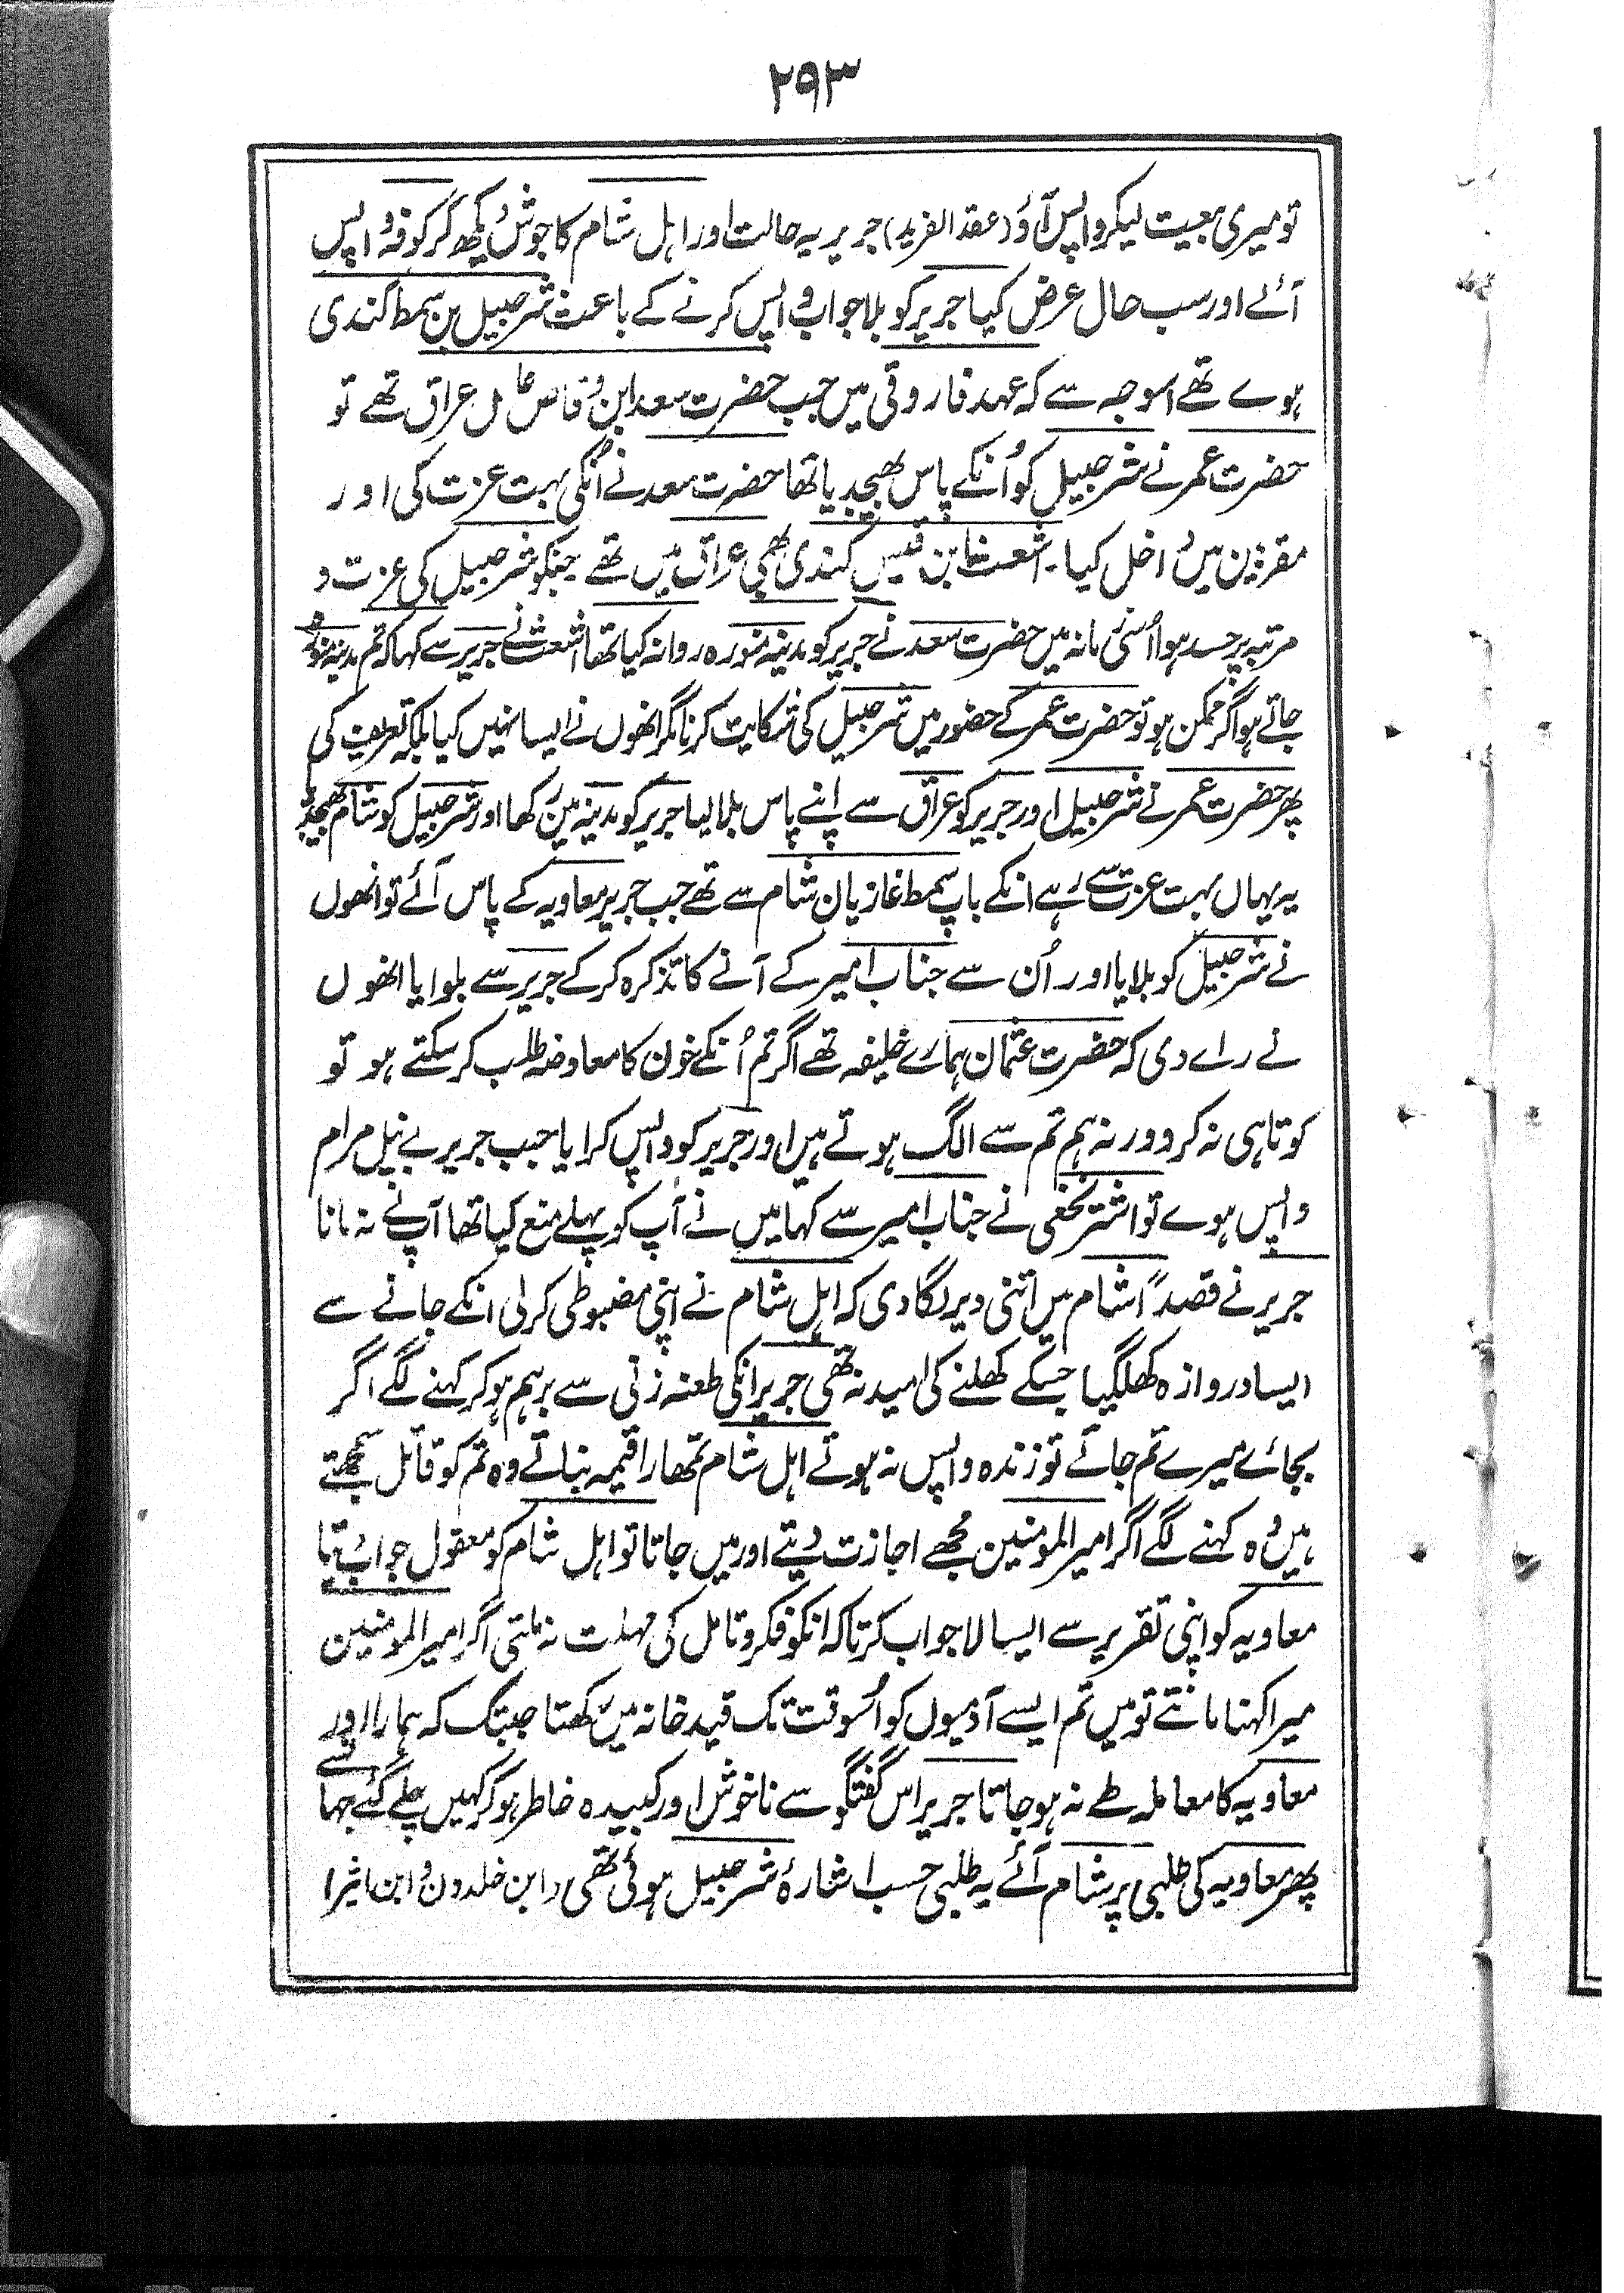 ۲۹۳
تو میری بیعت لیکر واپس آؤ (عقد الفرید) جریر یہ حالت اور اہل شام کا جوش دیکھ کر کوفہ واپس
آئے اور سب حال عرض کیا جریر کو بلا جواب واپس کرنے کے باعث شرحبیل بن سمط کندی
ہوے تھے اسوجہ سے کہ عہد فاروقی میں جب حضرت سعد ابن وقاص عامل عراق تھے تو
حضرت عمر نے شرحبیل کو اُنکے پاس بھیجدیا تھا حضرت سعد نے اُنکی بہت عزت کی اور
مقربین میں داخل کیا۔ اشعث ابن قیس کندی بھی عراق میں تھے جنکو شرحبیل کی عزت و
مرتبہ پر حسد ہوا اُسی زمانہ میں حضرت سعد نے جریر کو مدینہ منورہ روانہ کیا تھا اشعث نے جریر سے کہا کہ تم مدینہ منورہ
جاتے ہو اگر ممکن ہو تو حضرت عمر کے حضور میں شرحبیل کی شکایت کرنا مگر انھوں نے ایسا نہیں کیا بلکہ تعریف کی
پھر حضرت عمر نے شرحبیل اور جریر کو عراق سے اپنے پاس بلا لیا جریر کو مدینہ میں رکھا اور شرحبیل کو شام بھیجدیا
یہ یہاں بہت عزت سے رہے انکے باپ سمط غازیان شام سے تھے جب جریر معاویہ کے پاس آئے تو انھوں
نے شرحبیل کو بلایا اور اُن سے جناب امیر کے آنے کا تذکرہ کر کے جریر سے بلوایا انھوں
نے راے دی کہ حضرت عثمان ہمارے خلیفہ تھے اگر تم اُنکے خون کا معاوضہ طلب کر سکتے ہو تو
کوتاہی نہ کرو ورنہ ہم تم سے الگ ہوتے ہیں اور جریر کو واپس کرایا جب جریر بے نیل مرام
واپس ہوے تو اشتر نخعی نے جناب امیر سے کہا میں نے آپ کو پہلے منع کیا تھا آپنے نہ مانا
جریر نے قصداً شام میں اتنی دیر لگا دی کہ اہل شام نے اپنی مضبوطی کر لی انکے جانے سے
ایسا دروازہ کھلگیا جسکے کھلنے کی امید نہ تھی جریر انکی طعنہ زنی سے برہم ہو کر کہنے لگے اگر
بجائے میرے تم جاتے تو زندہ واپس نہ ہوتے اہل شام تمھارا قیمہ بناتے وہ تم کو قاتل سمجھتے
ہیں وہ کہنے لگے اگر امیر المومنین مجھے اجازت دیتے اور میں جاتا تو اہل شام کو معقول جواب دیتا
معاویہ کو اپنی تقریر سے ایسا لاجواب کرتا کہ انکو فکر و تامل کی مہلت نہ ملتی اگر امیر المومنین
میرا کہنا مانتے تو میں تم ایسے آدمیوں کو اُسوقت تک قید خانہ میں رکھتا جبتک کہ ہمارا اور
معاویہ کا معاملہ طے نہ ہو جاتا جریر اس گفتگو سے ناخوش اور کبیدہ خاطر ہو کر کہیں چلے گئے جہاں سے
پھر معاویہ کی طلبی پر شام آئے یہ طلبی حسب اشارۂ شرحبیل ہوئی تھی (ابن خلدون و ابن اثیر)